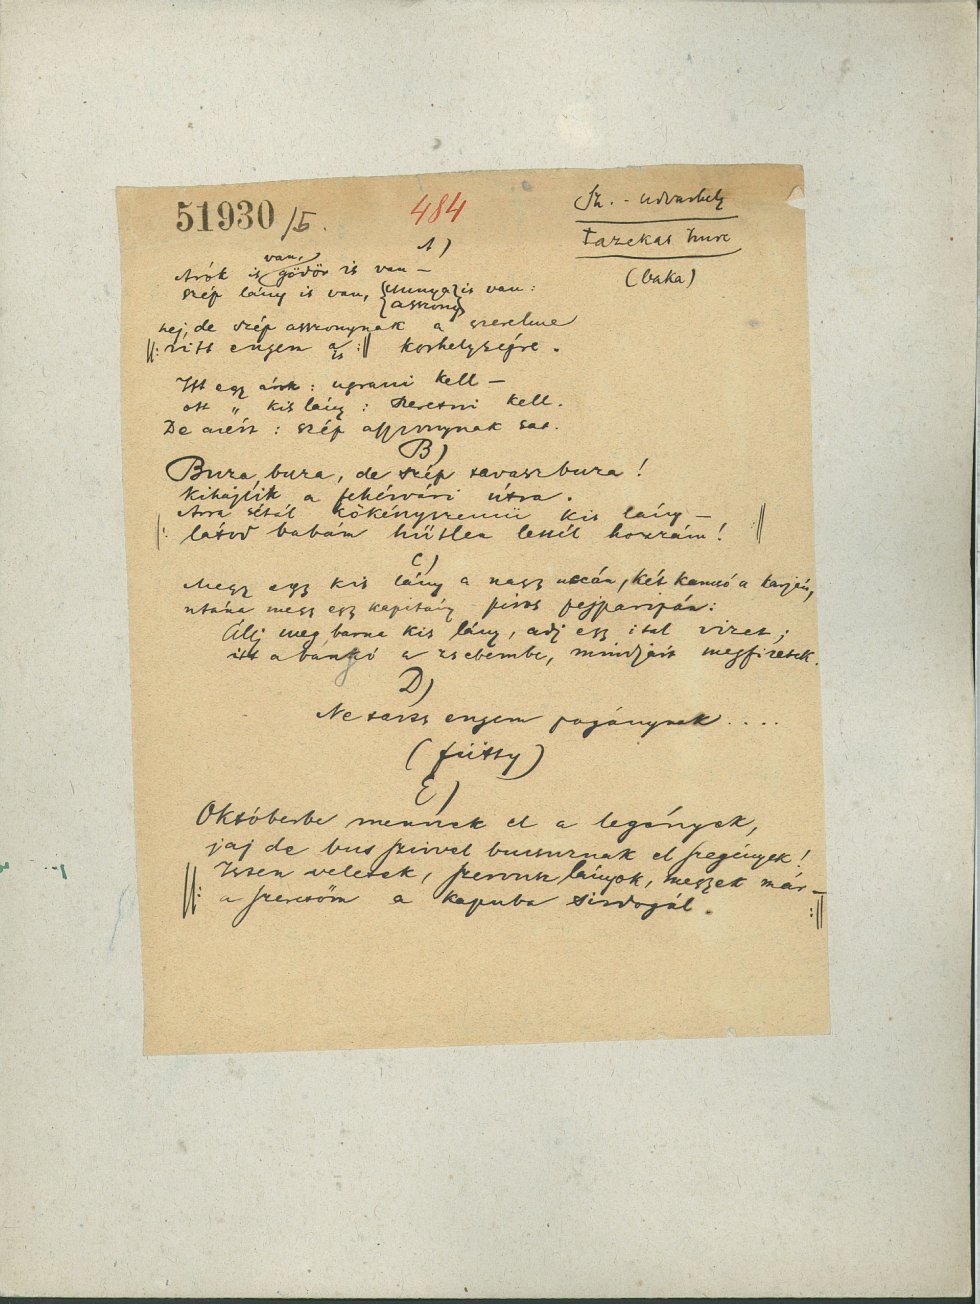 51930/5.
484
Sz. - udvarhely
Fazekas Imre
(baka)
A)
Árok is van, gödör is van —
szép lány is van, {menyecske} is van:
{asszony}
hej, de szép asszonynak a szerelme
||: vitt engem a :|| korhelységre.
Itt egy árok: ugrani kell —
ott „ kis lány: szeretni kell.
De azért: szép asszonynak sat.
B)
Buza, buza, de szép tavaszbuza!
Kihajlik a fehérvári útra.
|: Arra sétál kökényszemü kis lány —
látod babám hűtlen lettél hozzám! :||
C)
Megy egy kis lány a nagy uccán, két kannsó a karján,
utána megy egy kapitány piros pejparipán:
Álj meg barna kis lány, adj egy ital vizet;
itt a bankó a zsebembe, mindjárt megfizetek.
D)
Ne tarts engem pogánynak ....
(fütty)
E)
Októberbe mennek el a legények,
jaj de bus szivvel bucsuznak el szegények!
||: Isten veletek, szervusz lányok, megyek már —
a szeretőm a kapuba sirdogál. :||